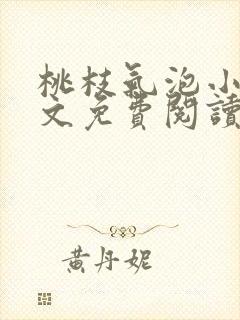 桃枝氣泡小
文免費閱讀
黃丹妮